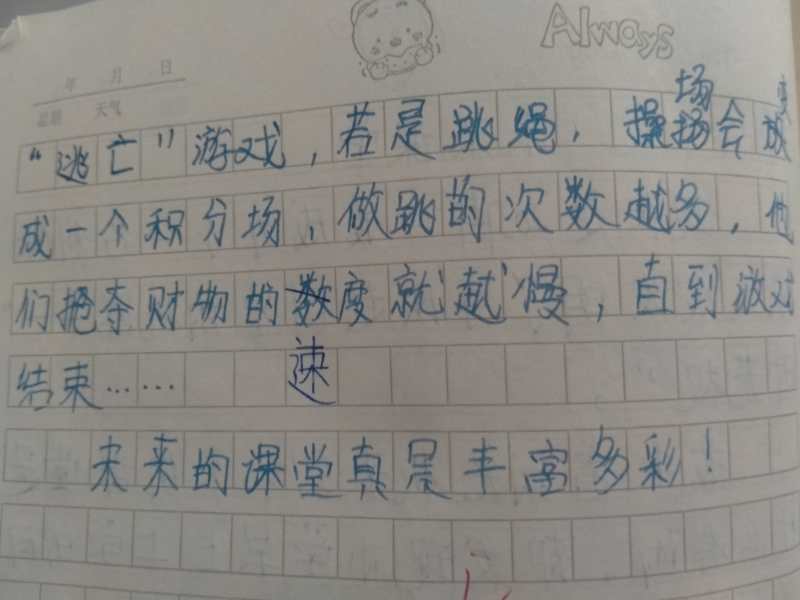 Always
年 月 日
星期 天气
“逃亡”游戏，若是跳绳，操场会变
成一个积分场，做跳的次数越多，他
们抢夺财物的速度就越慢，直到游戏
结束……
未来的课堂真是丰富多彩！